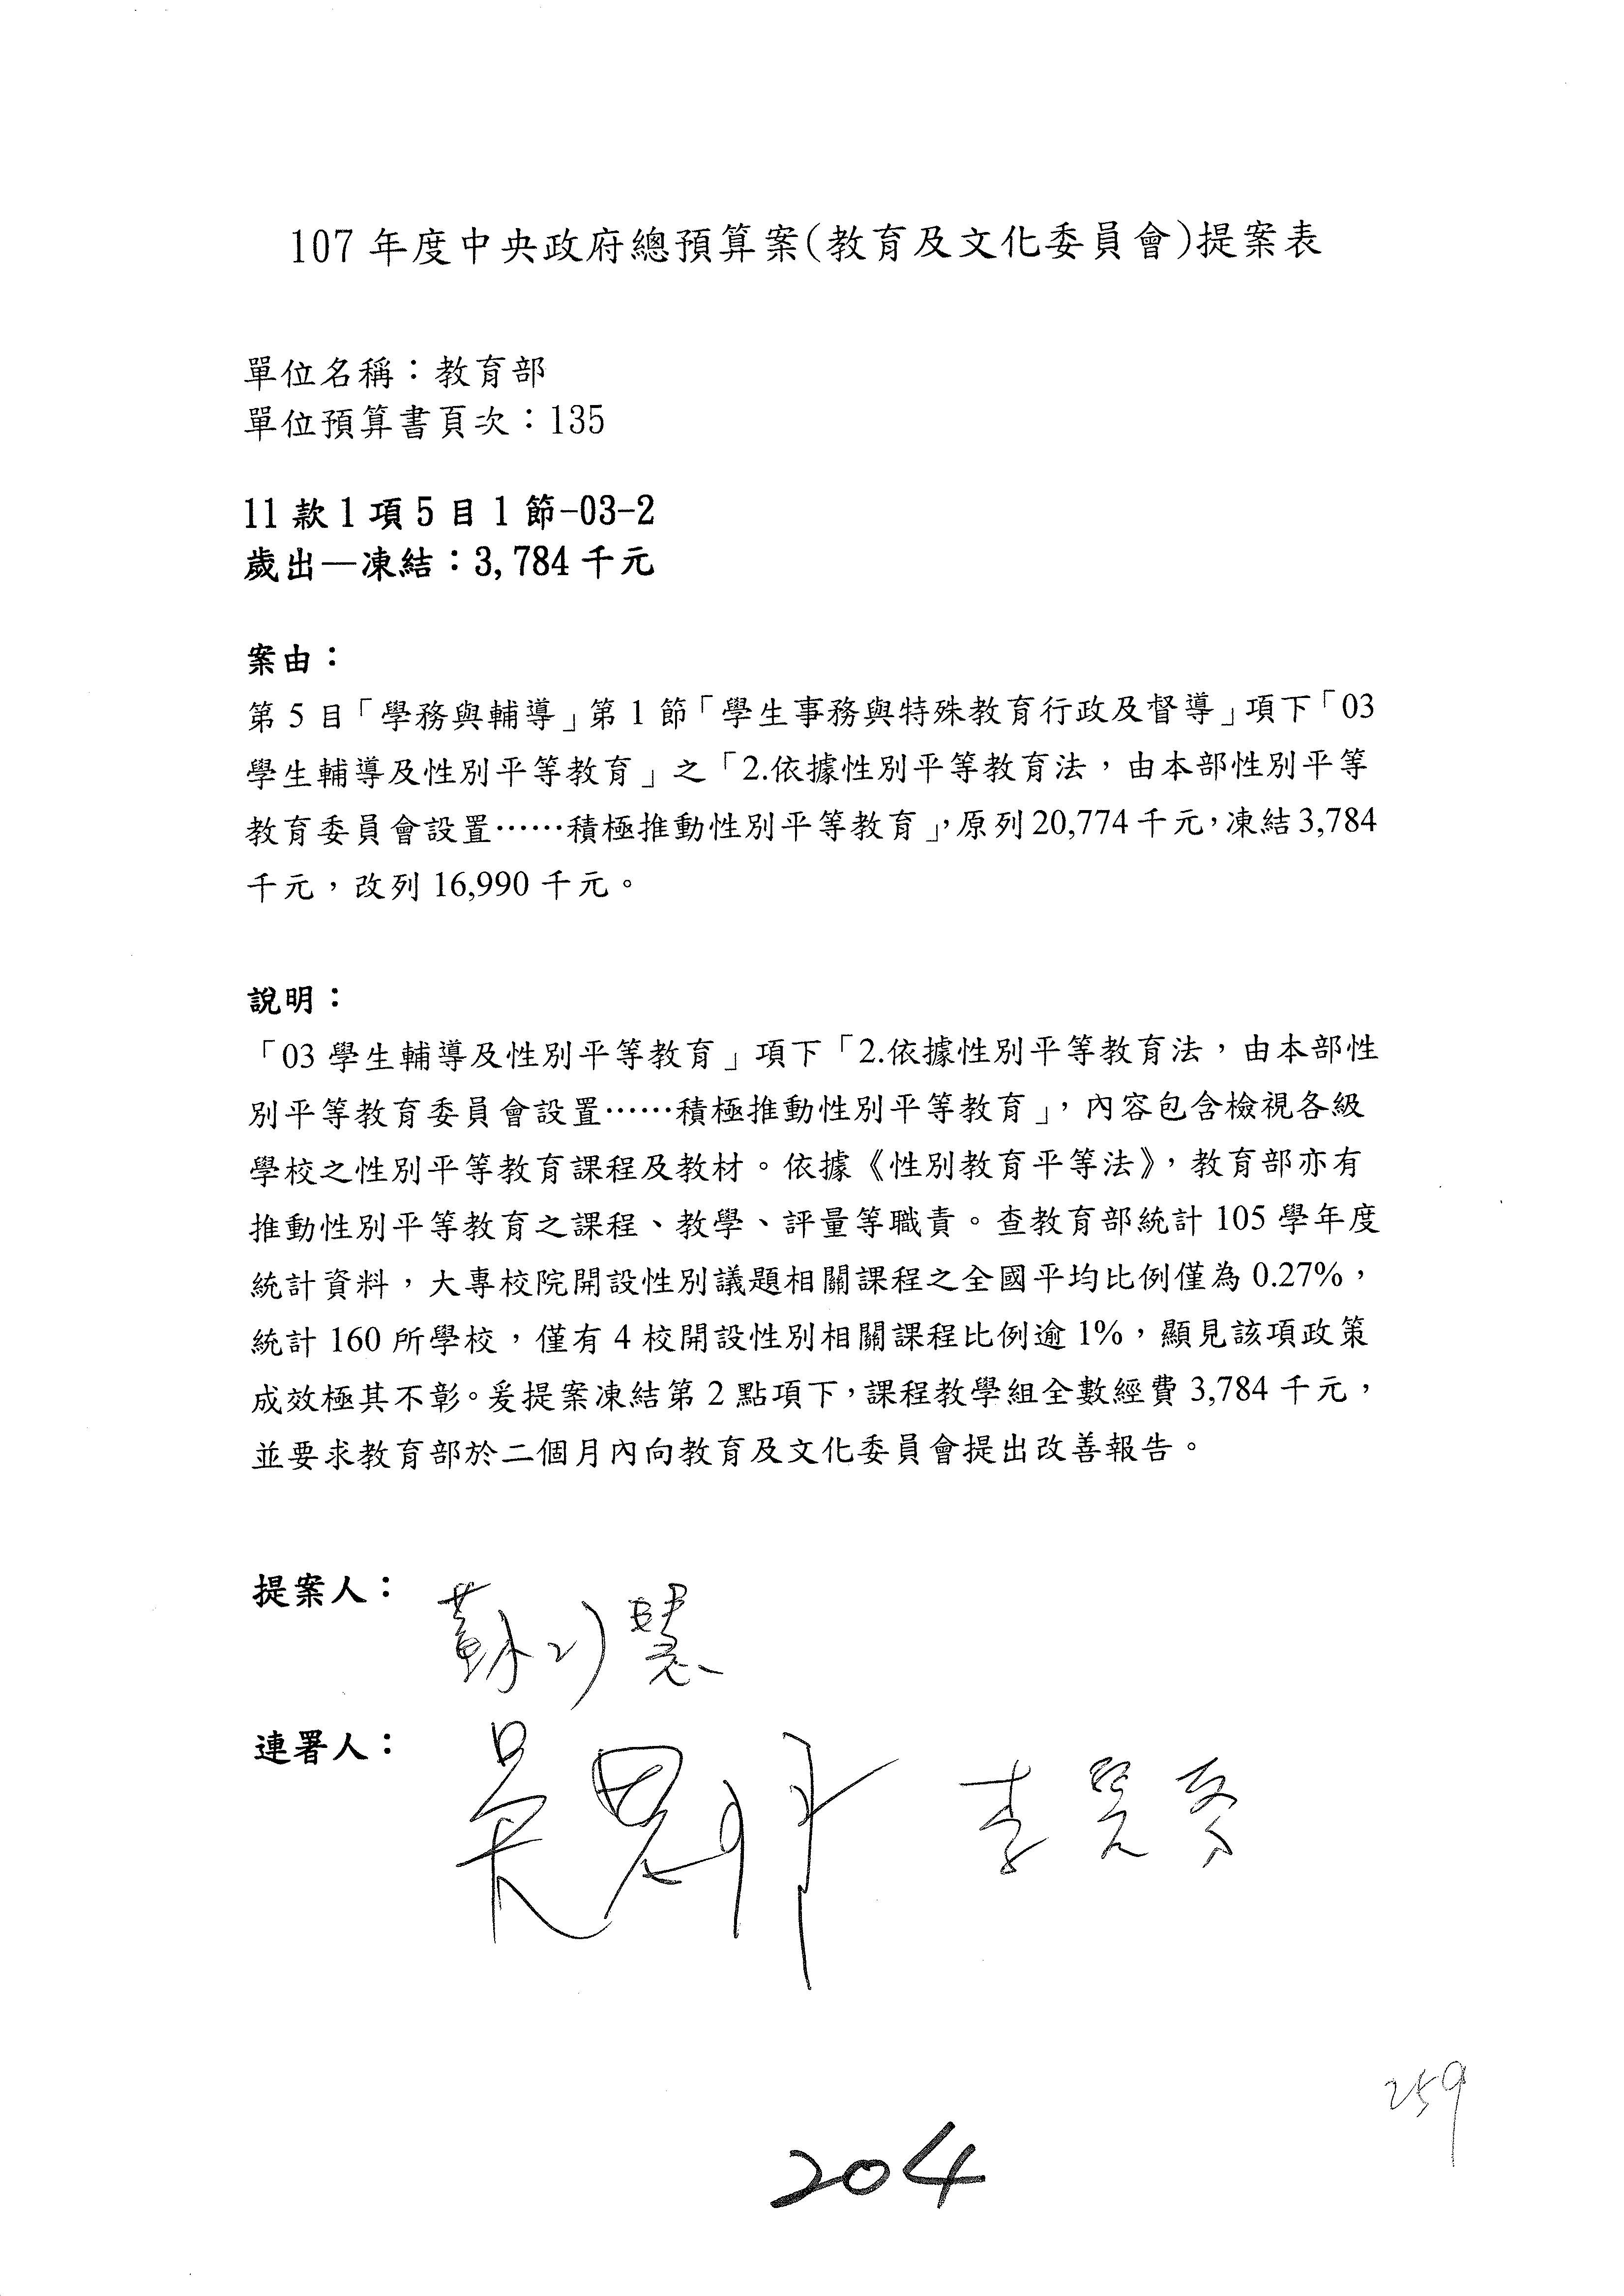 107 年度中央政府總預算案(教育及文化委員會)提案表
單位名稱：教育部
單位預算書頁次：135
11 款 1 項 5 目 1 節-03-2
歲出—凍結：3,784 千元
案由：
第 5 目「學務與輔導」第 1 節「學生事務與特殊教育行政及督導」項下「03
學生輔導及性別平等教育」之「2.依據性別平等教育法，由本部性別平等
教育委員會設置……積極推動性別平等教育」，原列 20,774 千元，凍結 3,784
千元，改列 16,990 千元。
說明：
「03 學生輔導及性別平等教育」項下「2.依據性別平等教育法，由本部性
別平等教育委員會設置……積極推動性別平等教育」，內容包含檢視各級
學校之性別平等教育課程及教材。依據《性別教育平等法》，教育部亦有
推動性別平等教育之課程、教學、評量等職責。查教育部統計 105 學年度
統計資料，大專校院開設性別議題相關課程之全國平均比例僅為 0.27%，
統計 160 所學校，僅有 4 校開設性別相關課程比例逾 1%，顯見該項政策
成效極其不彰。爰提案凍結第 2 點項下，課程教學組全數經費 3,784 千元，
並要求教育部於二個月內向教育及文化委員會提出改善報告。
提案人：蘇巧慧
連署人：吳思瑤 李麗芬
259
204